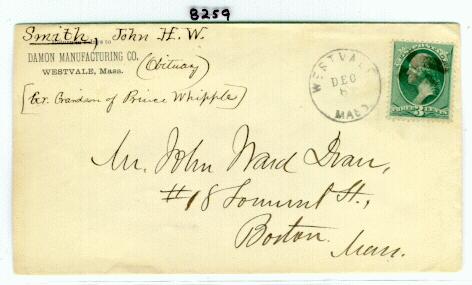 8259
Smith, John H. W.
DAMON MANUFACTURING CO.
WESTVALE, Mass.
(Obituary)
[Gr. Grandson of Prince Whipple]
WESTVALE
DEC
6
MASS.
U.S. POSTAGE
THREE 3 CENTS
Mr. John Ward Dean,
#18 Somerset St.,
Boston
Mass.